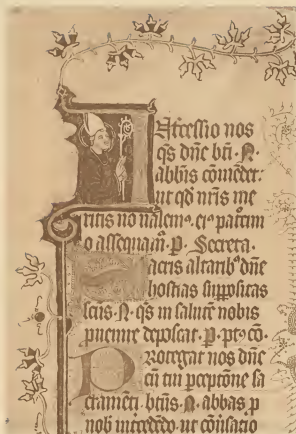 Intcessio nos
q̄s dn̄e bt̄i · N ·
abb̄is cōmēdet :
ut qd̄ nr̄is me
ritis nō valem⁹ · ei⁹ patcini
o assequam̄ · P · Secreta ·
Sacris altarib⁹ dn̄e
hostias suppositas
scūs · N · q̄s in salutē nobis
puenire deposcat · P · pt⁹ cō ·
Protegat nos dn̄e
cū tui pceptōne sa
cramēti · bt̄us · N · abbas p
nob̄ intcedēdo · ut cōūsacio